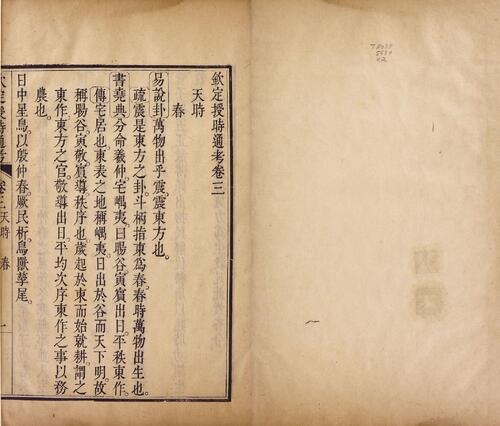 欽定授時通考卷三
天時
春
易說卦萬物出乎震震東方也。
疏震是東方之卦。斗柄指東爲春。春時萬物出生也。
書堯典分命羲仲。宅嵎夷。曰暘谷。寅賓出日。平秩東作。
傳宅居也。東表之地稱嵎夷。日出於谷而天下明。故
稱暘谷。寅敬。賓導。秩序也。歲起於東而始就耕。謂之
東作。東方之官。敬導出日。平均次序東作之事。以務
農也。
日中星鳥。以殷仲春。厥民析。鳥獸孳尾。
欽定授時通考 卷三 天時 春 一